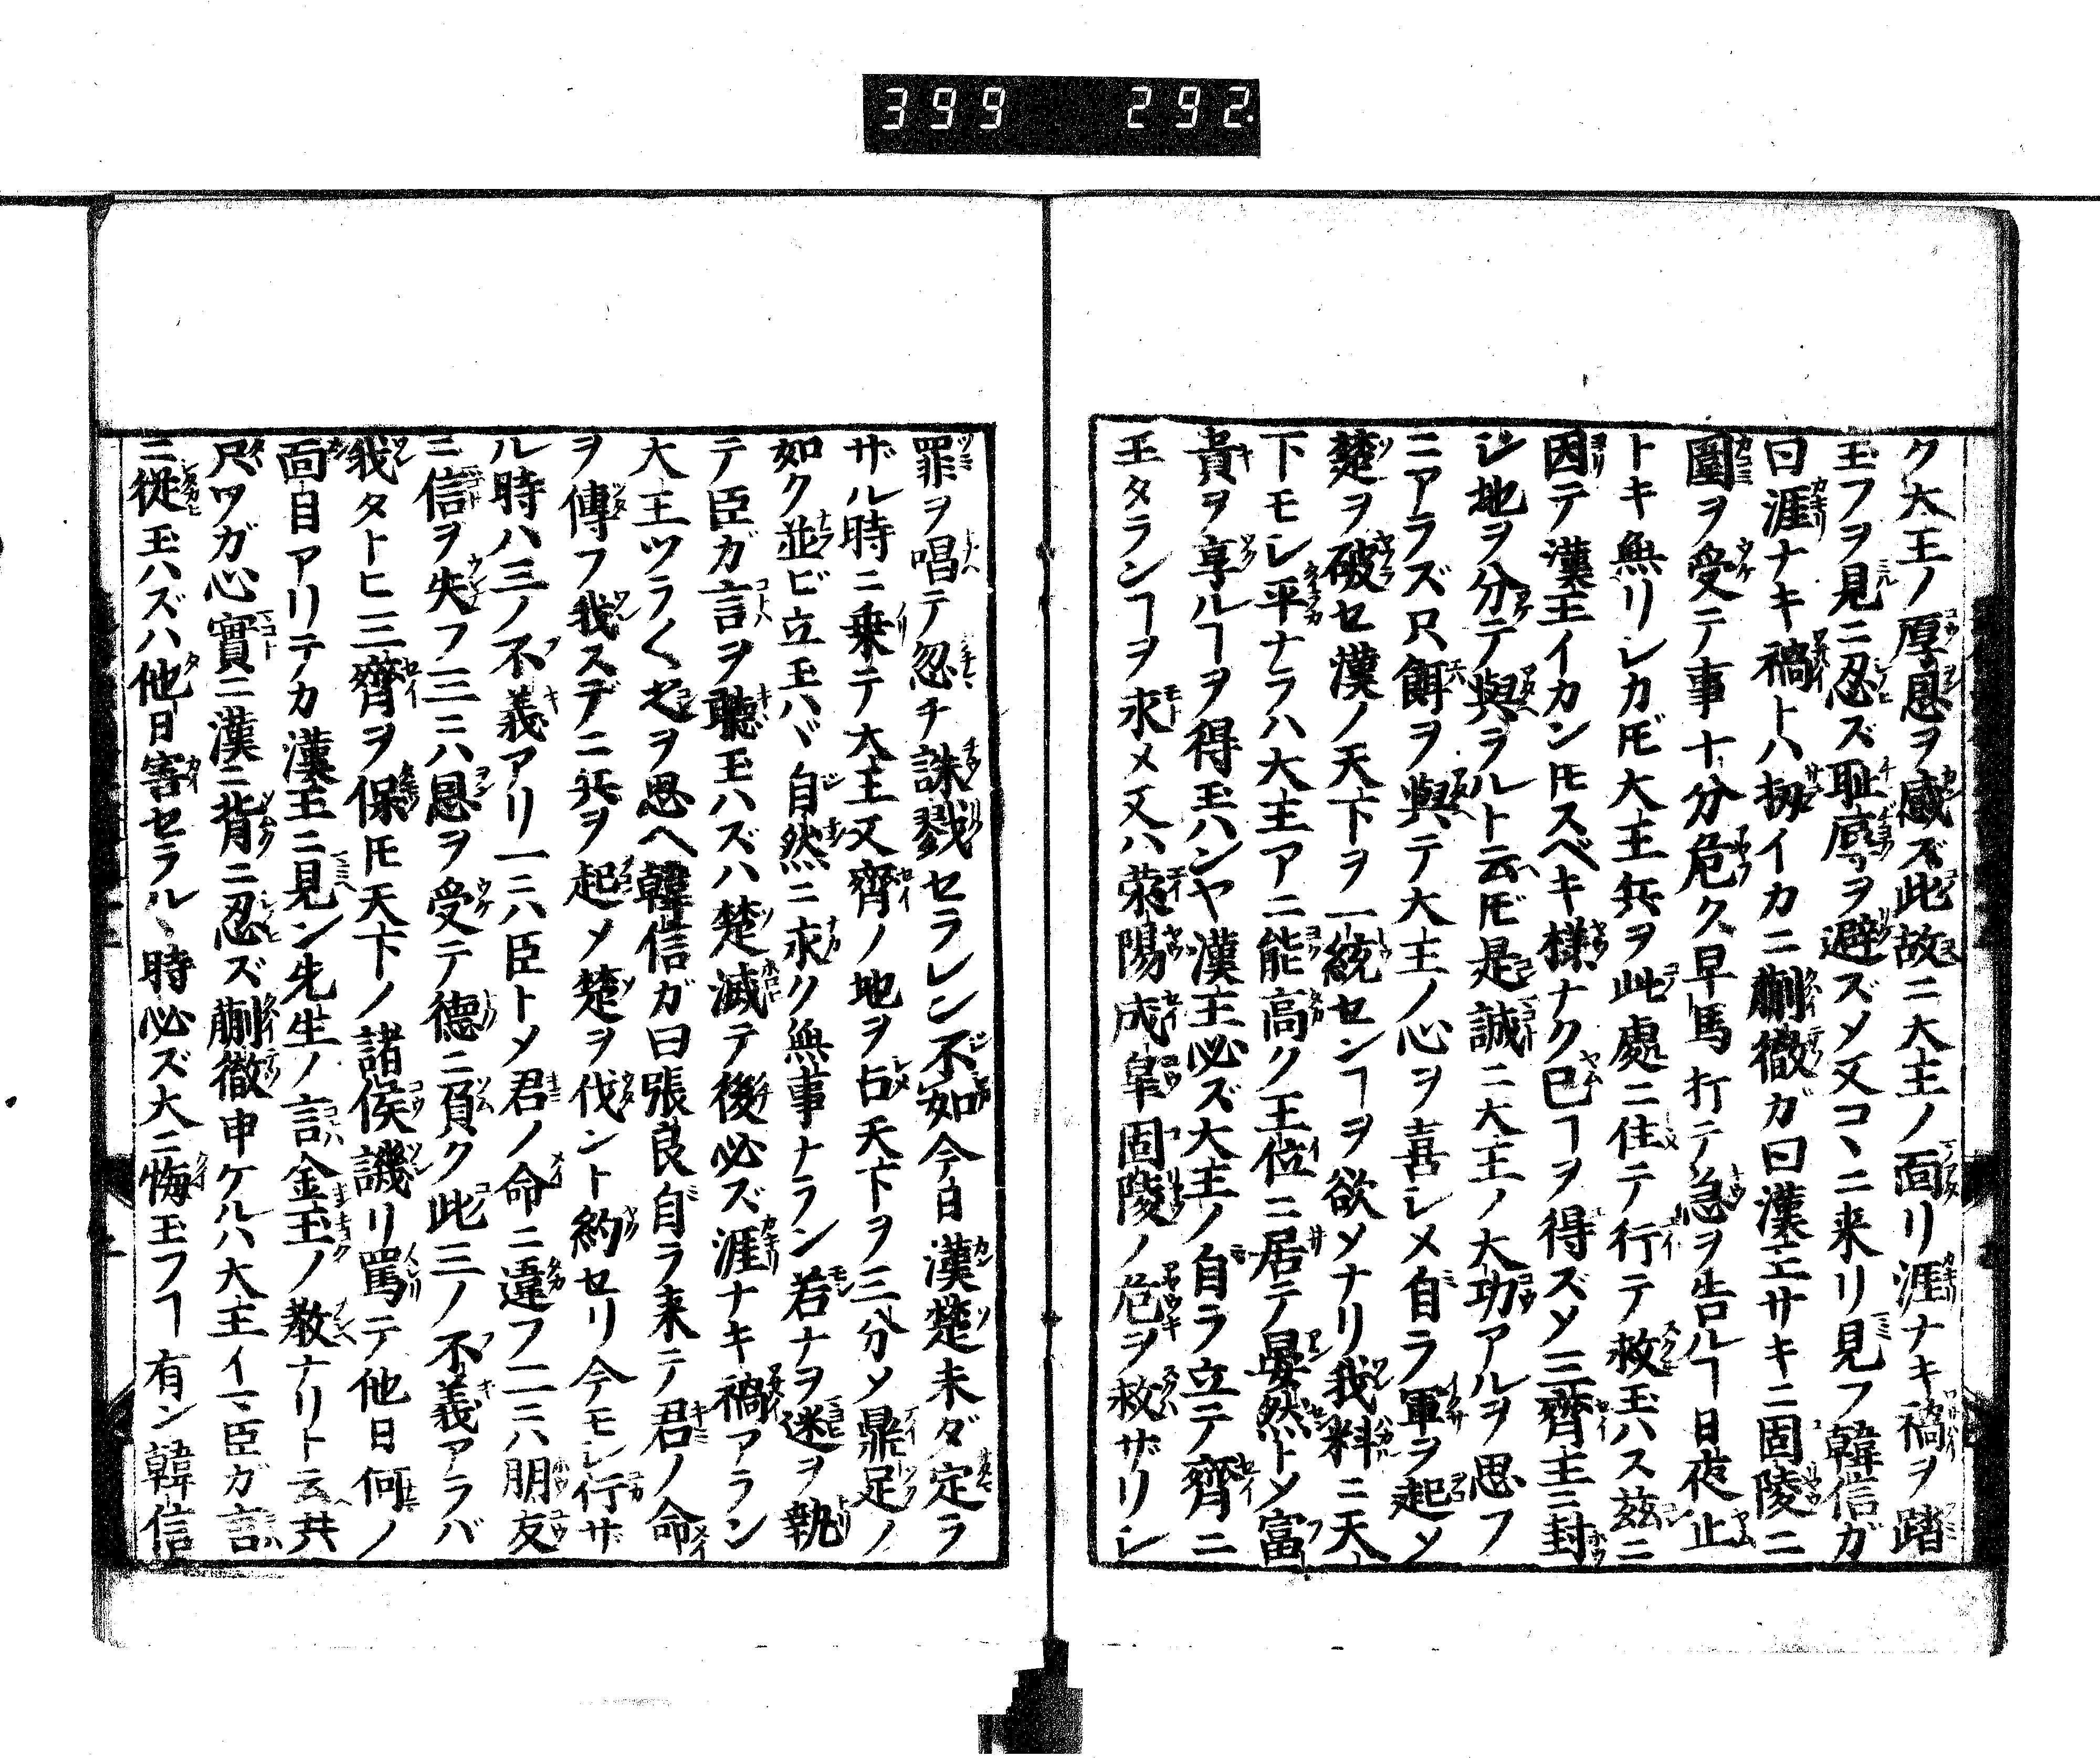 399 292.
ク大王ノ厚恩ヲ感ズ此故ニ大王ノ面リ涯ナキ禍ヲ踏
玉フヲ見ニ忍ズ耻辱ヲ避ズメ又コヽニ来リ見フ韓信ガ
曰涯ナキ禍トハ扨イカニ蒯徹ガ曰漢王サキニ固陵ニ
圍ヲ受テ事十分危ク早馬打テ急ヲ告ルヿ日夜止
トキ無リシカ𪜈大王兵ヲ此處ニ住テ行テ救玉ハス茲ニ
因テ漢王イカン𪜈スベキ様ナク已ヿヲ得ズメ三齊王ニ封
シ地ヲ分テ與ヲルト云𪜈是誠ニ大王ノ大功アルヲ思フ
ニアラズ只餌ヲ與テ大王ノ心ヲ喜シメ自ラ軍ヲ起メ
楚ヲ破セ漢ノ天下ヲ一統センヿヲ欲メナリ我料ニ天
下モシ平ナラハ大王アニ能高ク王位ニ居テ晏然トメ富
貴ヲ享ルヿヲ得玉ハンヤ漢王必ズ大王ノ自ラ立テ齊ニ
王タランヿヲ求メ又ハ滎陽成皐固陵ノ危ヲ救ザリシ
罪ヲ唱テ忽チ誅戮セラレン不如今日漢楚未ダ定ラ
ザル時ニ乗テ大王又齊ノ地ヲ占天下ヲ三分メ鼎足ノ
如ク並ビ立玉ハヾ自然ニ永ク無事ナラン若ナヲ迷ヲ執
テ臣ガ言ヲ聴玉ハズハ楚滅テ後必ズ涯ナキ禍アラン
大王ツラ〱之ヲ思ヘ韓信ガ曰張良自ラ来テ君ノ命
ヲ傳フ我スデニ兵ヲ起メ楚ヲ伐ント約セリ今モシ行ザ
ル時ハ三ノ不義アリ一ニハ臣トメ君ノ命ニ違フ二ニハ朋友
ニ信ヲ失フ三ニハ恩ヲ受テ德ニ負ク此三ノ不義アラバ
我タトヒ三齊ヲ保𪜈天下ノ諸侯譏リ罵テ他日何ノ
面目アリテカ漢王ニ見ン先生ノ言金玉ノ敎ナリト云𪜈
只ワガ心實ニ漢ニ背ニ忍ズ蒯徹申ケルハ大王イマ臣ガ言
ニ従玉ハズハ他日害セラルヽ時必ズ大ニ悔玉フヿ有ン韓信